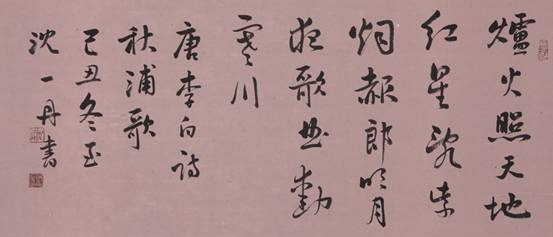 爐火照天地
紅星亂紫
烟赧郎明月
夜歌曲動
寒川
唐李白詩
秋浦歌
己丑冬至
沈一丹書